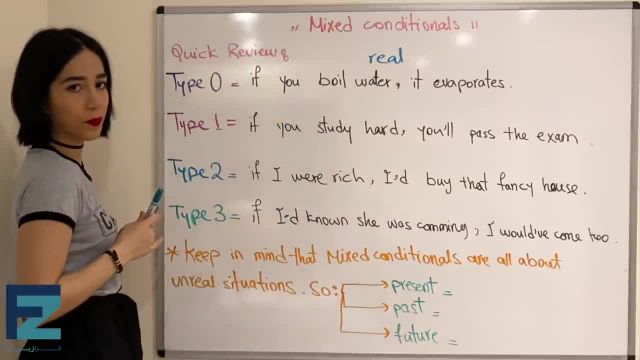 ,, Mixed conditionals ,,
Quick Review:
real
Type 0 = if you boil water, it evaporates.
Type 1 = if you study hard, you'll pass the exam.
Type 2 = if I were rich, I'd buy that fancy house.
Type 3 = if I'd known she was comming, I would've come too.
* Keep in mind that Mixed conditionals are all about
unreal situations. So:
present =
past =
future =